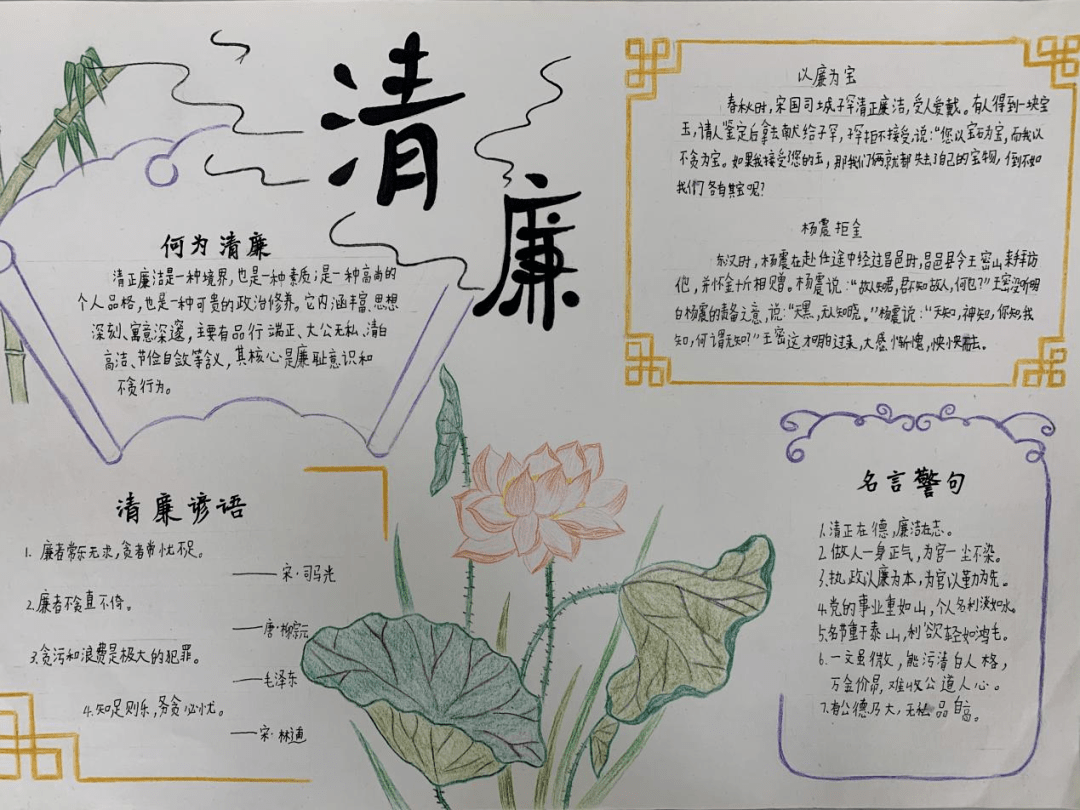 清廉
何为清廉
清正廉洁是一种境界,也是一种素质;是一种高尚的
个人品格,也是一种可贵的政治修养。它内涵丰富、思想
深刻、寓意深邃,主要有品行端正、大公无私、清白
高洁、节俭自敛等含义,其核心是廉耻意识和
不贪行为。
以廉为宝
春秋时,宋国司城子罕清正廉洁,受人爱戴。有人得到一块宝
玉,请人鉴定后拿去献给子罕,子罕拒不接受,说:“您以宝石为宝,而我以
不贪为宝。如果我接受了您的玉,那我们俩就都失去了自己的宝物,倒不如
我们各有其宝呢?
杨震拒金
东汉时,杨震在赴任途中经过昌邑时,昌邑县令王密山来拜访
他,并怀金十斤相赠。杨震说:“故人知君,君不知故人,何也?”王密没听明
白杨震的责备之意,说:“天黑,无人知晓。”杨震说:“天知,神知,你知我
知,何谓无知?”王密这才明白过来,大感惭愧,怏怏而去。
清廉谚语
1. 廉者常乐无求,贪者常忧不足。
——宋·司马光
2.廉者不贪直不倚。
——唐·柳宗元
3.贪污和浪费是极大的犯罪。
——毛泽东
4.知足则乐,务贪必忧。
——宋·林逋
名言警句
1.清正在德,廉洁在志。
2.做人一身正气,为官一尘不染。
3.执政以廉为本,为官以勤为先。
4.党的事业重如山,个人名利淡如水。
5.名节重于泰山,利欲轻如鸿毛。
6.一文虽微,能污清白人格,
万金价昂,难收公道人心。
7.有公德乃大,无私品自高。